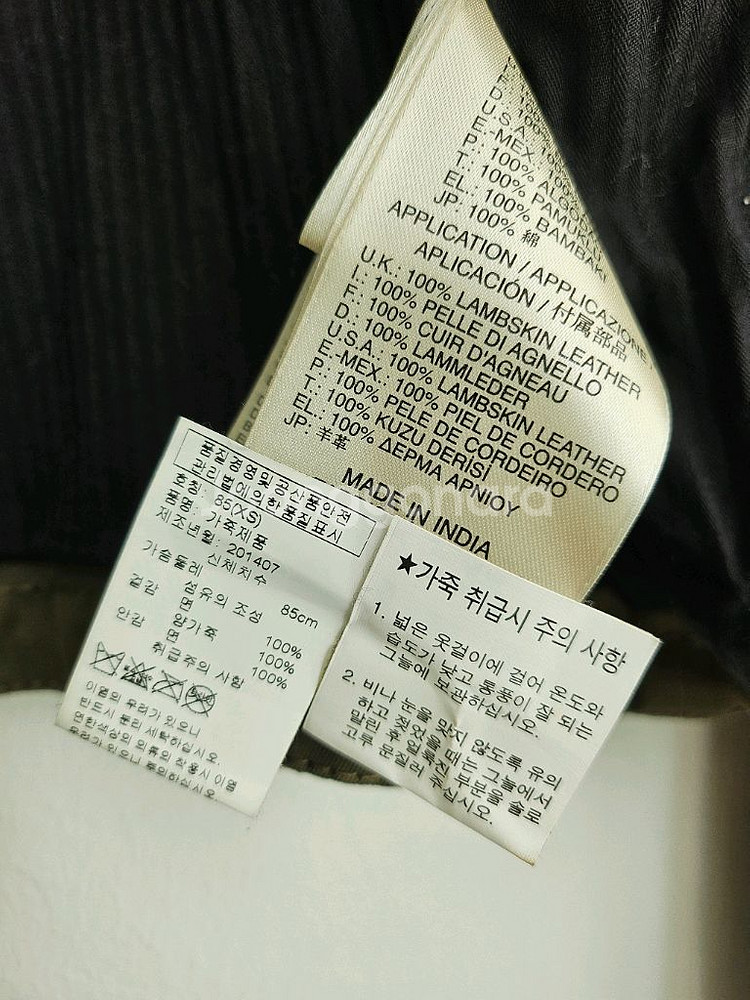 U.S.A.: 100%
E.-MEX.: 100% ALGO
P.: 100%
T.: 100% PAMUK
EL.: 100% BAMBAKI
JP: 100% 綿
APPLICATION / APPLICAZIONE
APLICACIÓN / 付属部品
U.K.: 100% LAMBSKIN LEATHER
I.: 100% PELLE DI AGNELLO
F.: 100% CUIR D'AGNEAU
D.: 100% LAMMLEDER
U.S.A.: 100% LAMBSKIN LEATHER
E.-MEX.: 100% PIEL DE CORDERO
P.: 100% PELE DE CORDEIRO
T.: 100% KUZU DERİSİ
EL.: 100% ΔΕΡΜΑ ΑΡΝΙΟΥ
JP: 羊革
MADE IN INDIA
품질경영및공산품안전
관리법에의한품질표시
호칭: 85(XS)
품명: 가죽제품
제조년월: 201407
신체치수
가슴둘레 85cm
섬유의 조성
겉감 면 100%
양가죽 100%
안감 면 100%
취급주의 사항
이염의 우려가 있으니
반드시 분리 세탁하십시오.
연한색상의 의류와 착용시 이염
우려가 있으니 주의하십시오.
★가죽 취급시 주의 사항
1. 넓은 옷걸이에 걸어 온도와
습도가 낮고 통풍이 잘 되는
그늘에 보관하십시오.
2. 비나 눈을 맞지 않도록 유의
하고 젖었을 때는 그늘에서
말린 후 얼룩진 부분을 솔로
고루 문질러 주십시오.